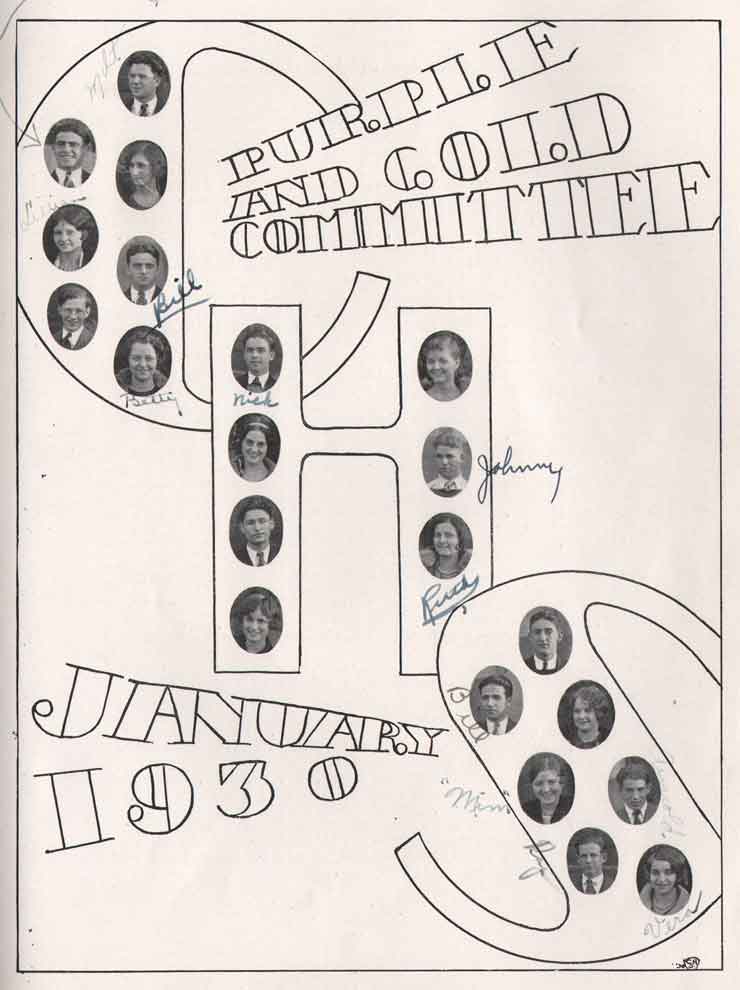 PURPLE
AND GOLD
COMMITTEE
CHS
Milt
Bill
Betty
Nick
Johnny
Ruth
JANUARY
1930
Bill
"Mim"
Ray
Vera